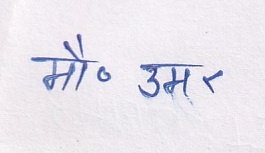 मौ॰ उमर